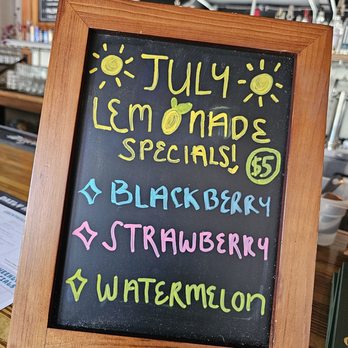 JULY
LEMONADE
SPECIALS!
$5
BLACKBERRY
STRAWBERRY
WATERMELON